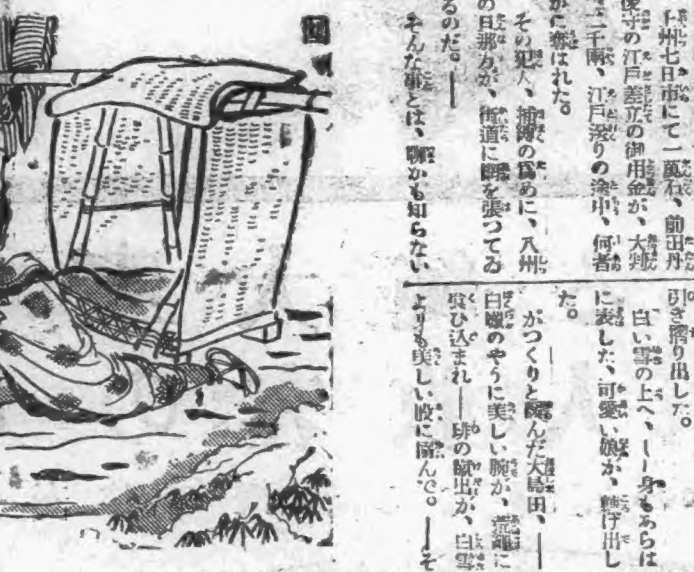 上州七日市にて一萬石、前田丹
後守の江戸差立の御用金が、大判
二千兩、江戸送りの途中、何者
かに奪はれた。
その犯人、捕縛の爲めに、八州
の旦那方が、街道に眼を張つてゐ
るのだ。――
そんな事とは、聊かも知らない
引き摺り出した。
白い雪の上へ、――身もあらは
に表した、可愛い娘が、轉げ出し
た。
――
がつくりと髷んだ大島田、――
白蠟のやうに美しい腕が、荒繩に
喰ひ込まれ――緋の蹴出が、白雪
よりも美しい股に
――そ